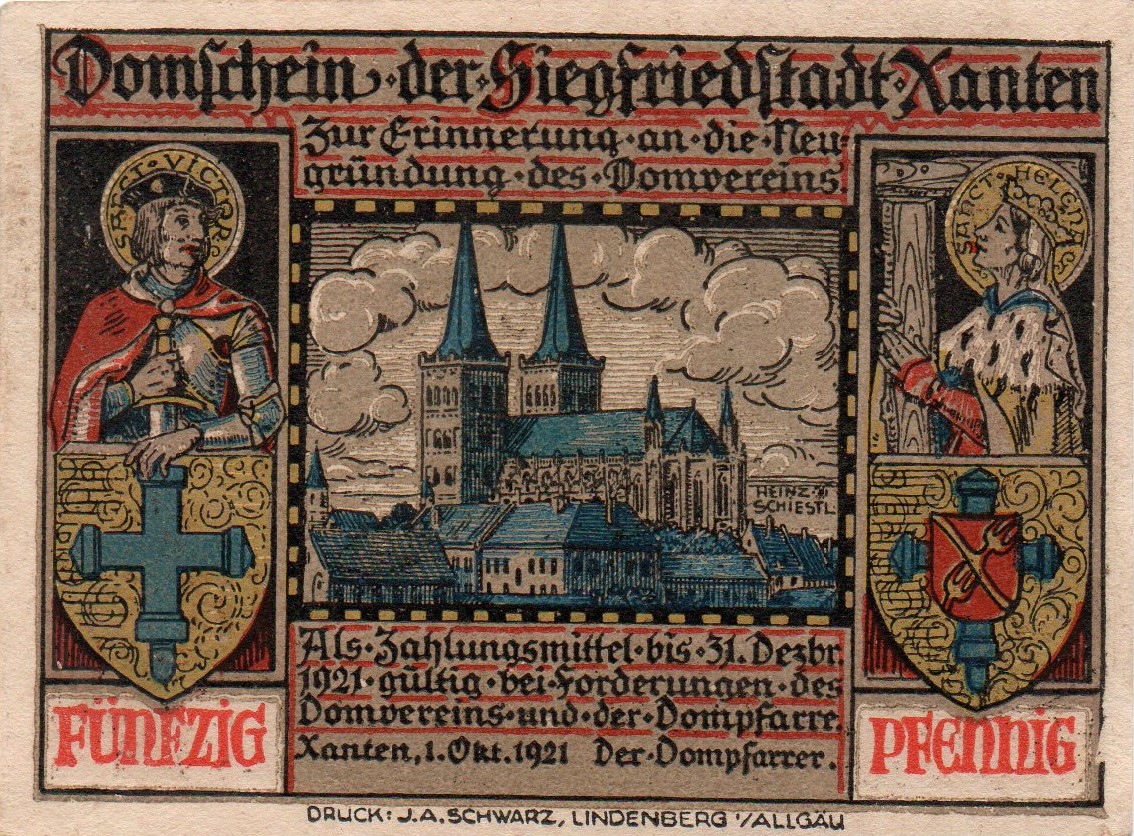 Domschein · der · Siegfriedstadt · Xanten
Zur · Erinnerung · an · die · Neu-
gründung · des · Domvereins.
SANCT · VICTOR
SANCT · HELENA
HEINZ
SCHIESTL
Als · Zahlungsmittel · bis · 31. Dezbr
1921 · gültig · bei · Forderungen · des
Domvereins · und · der · Dompfarre.
Xanten, 1. Okt. 1921 Der · Dompfarrer.
FÜNFZIG
PFENNIG
DRUCK: J. A. SCHWARZ, LINDENBERG i/ALLGÄU